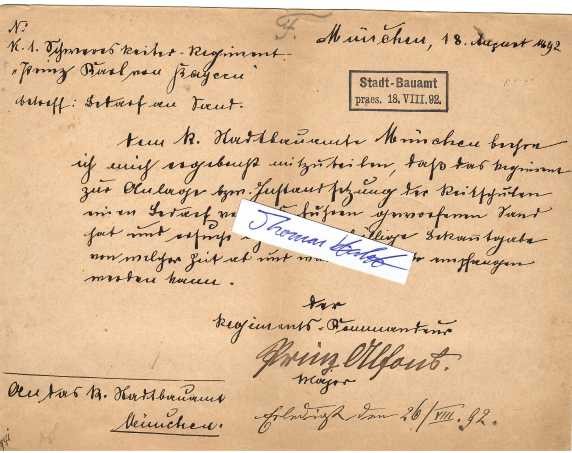 No.
K. 1. Schweres Reiter-Regiment
"Prinz Karl von Bayern"
betreff: Bedarf an Sand.
F.
München, 18. August 1892
Stadt-Bauamt
praes. 18. VIII. 92.
Dem K. Stadtbauamte München beehre
ich mich ergebenst mitzuteilen, daß das Regiment
zur Anlage bzw. Instandsetzung der Reitschulen
einen Bedarf von Fuhren geworfenen Sand
hat und ersuche Bekanntgabe
von welcher Zeit ab und empfangen
werden kann.
Thomas
Der
Regiments-Kommandeur
Prinz Alfons.
Major
An das K. Stadtbauamt
München.
Erledigt den 26/VIII. 92.